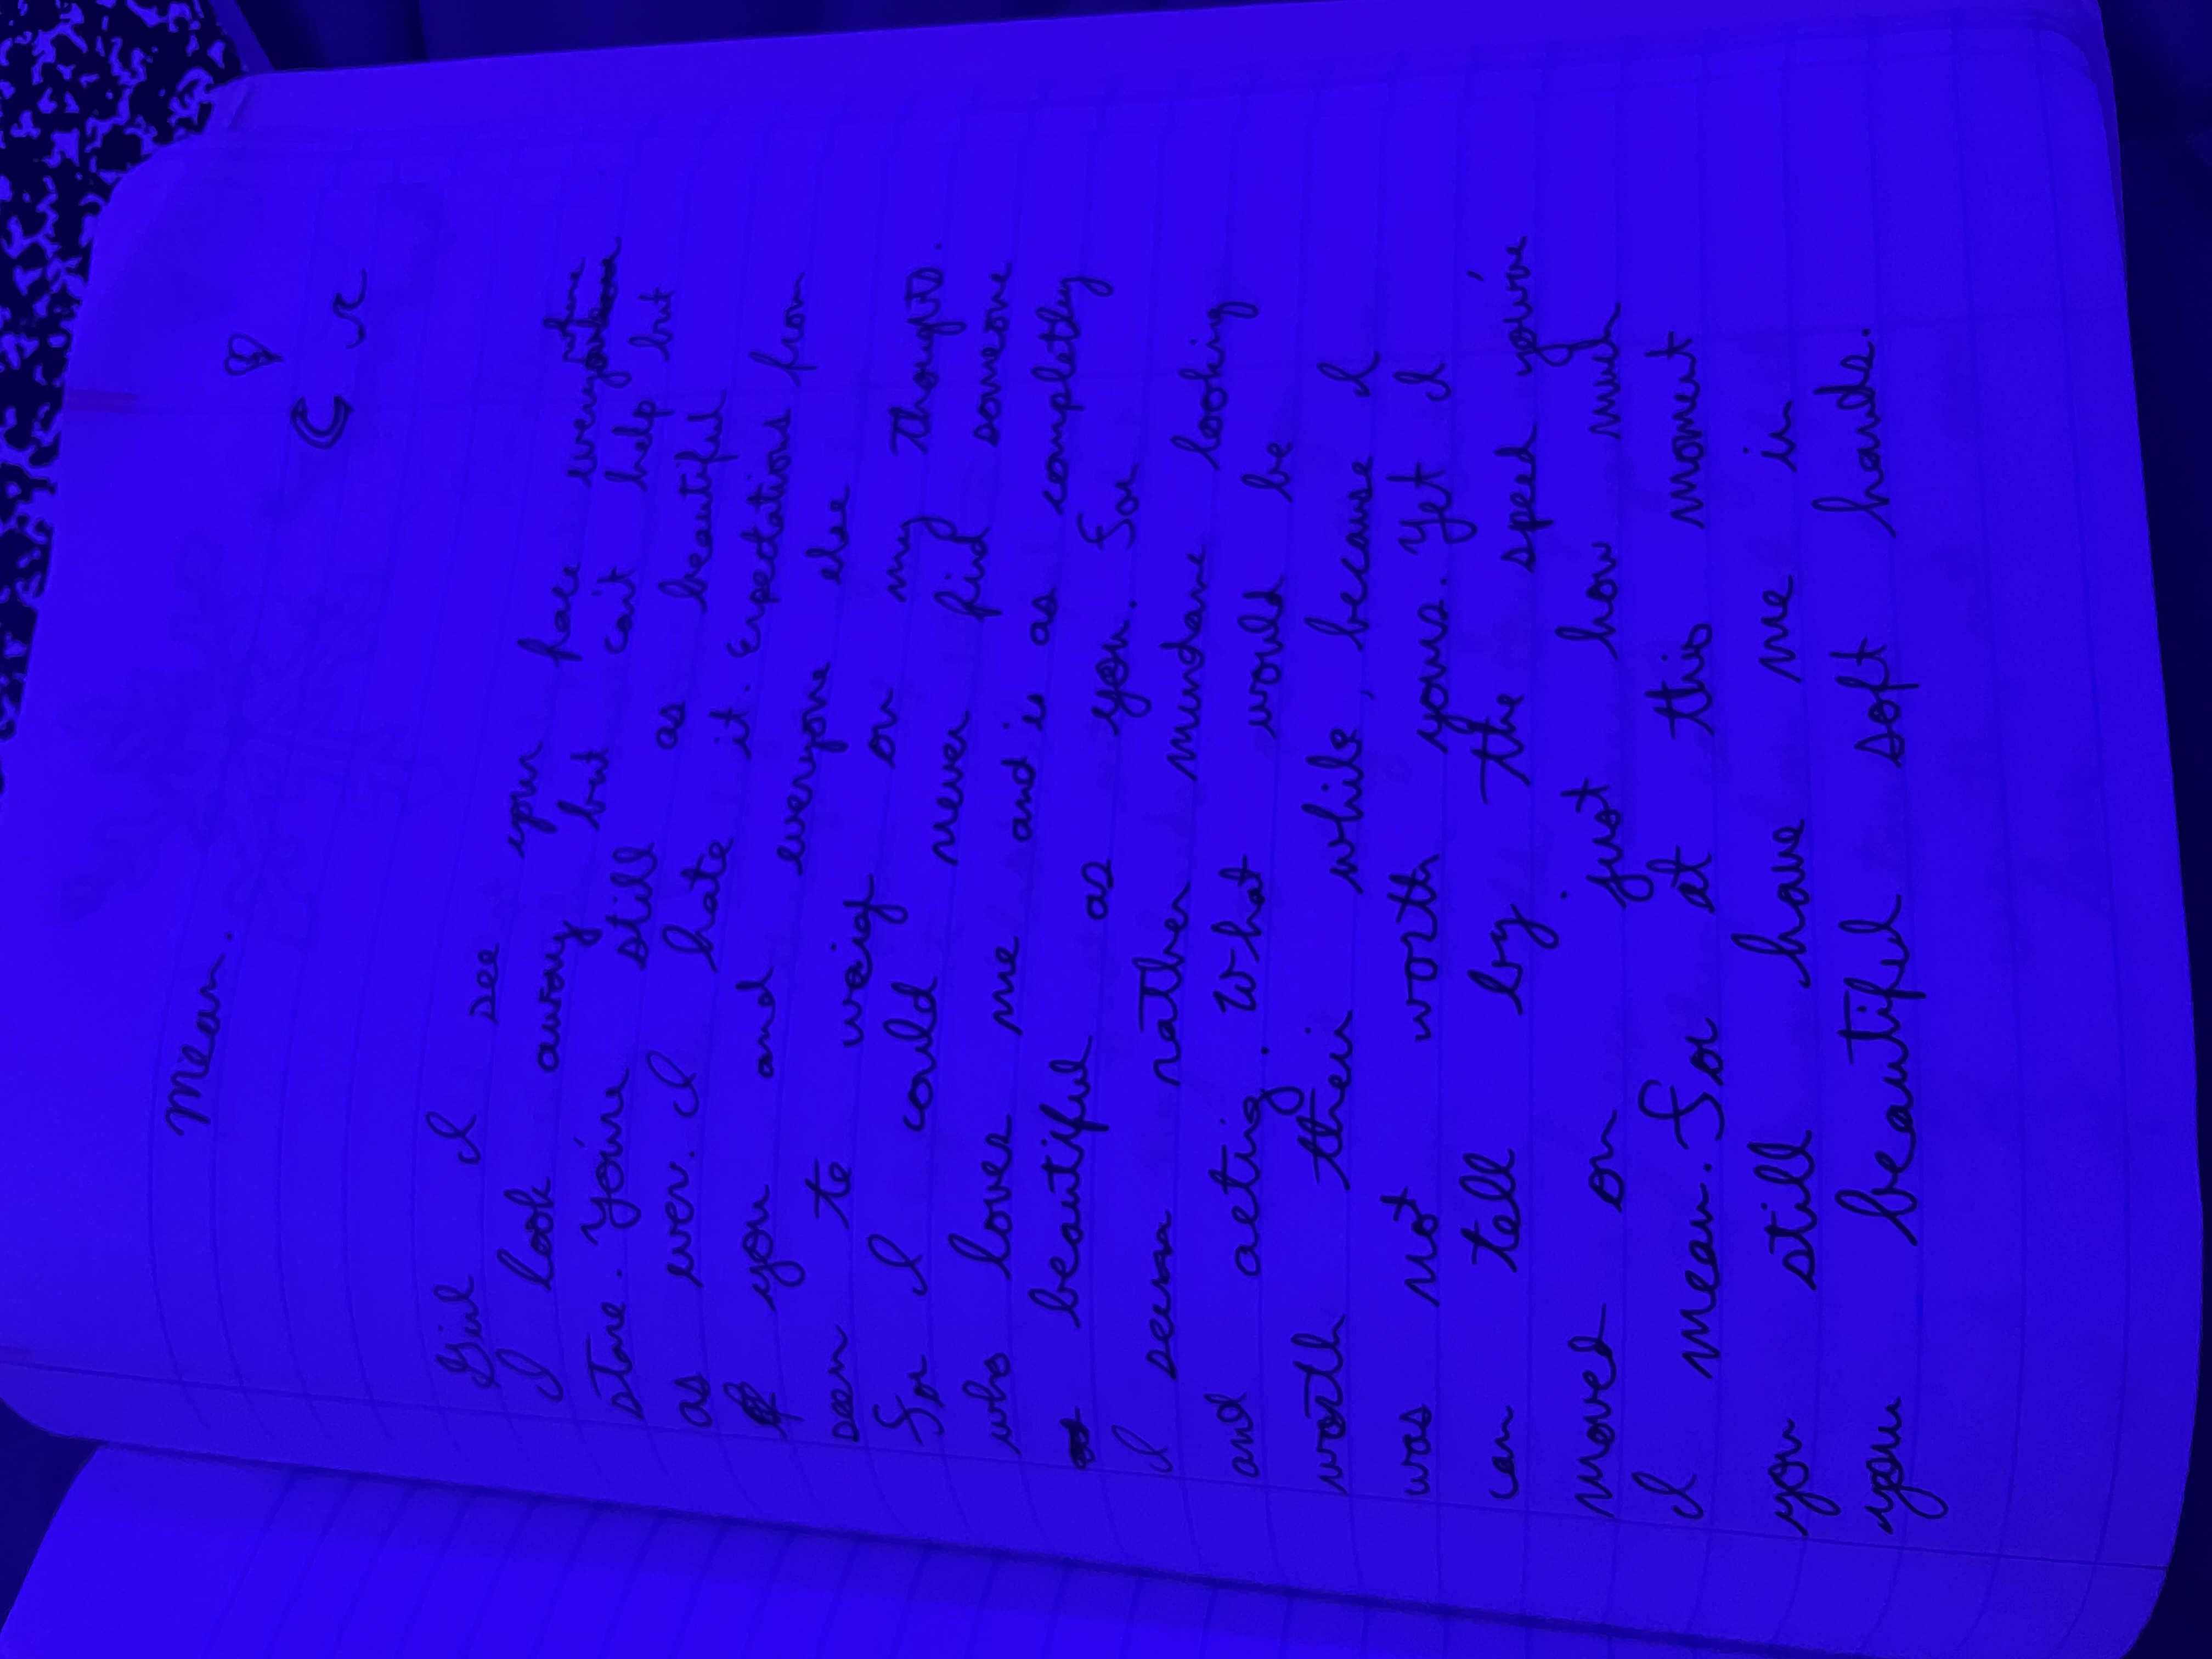 Mean.
C r
Girl I see your face everywhere
I look away but can't help but
stare. You're still as beautiful
as ever. I hate it. Expectations from
you and everyone else
seem to weigh on my thoughts.
For I could never find someone
who loves me and is as completley
beautiful as you. For
I seem rather mundane looking
and acting. What would be
worth their while, because I
was not worth yours. Yet I
can tell by the speed you've
moved on just how much
I mean. For at this moment
you still have me in
your beautiful soft hands.